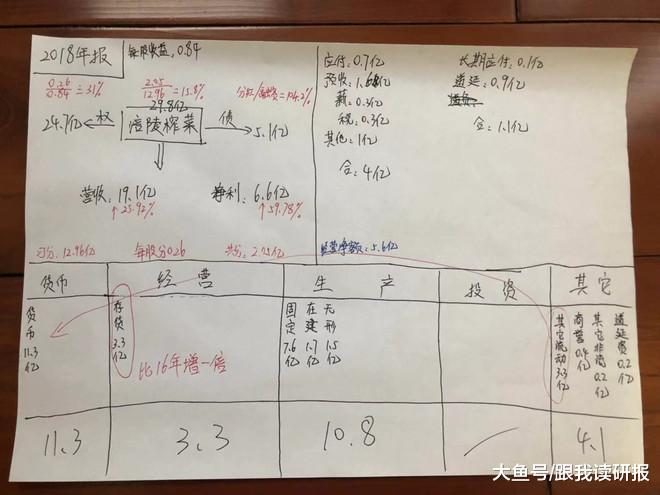 2018年报
每股收益,0.84
0.26/0.84=31%
2.05/12.96=15.8%
分红/融资=104.2%
29.8亿
24.7亿 权
涪陵榨菜
债 5.1亿
营收:19.1亿
↑25.92%
净利:6.6亿
↑59.78%
每股分0.26
经营净额:5.6亿
应付:0.7亿
预收:1.68亿
薪:0.3亿
税:0.3亿
其他:1亿
合:4亿
长期应付:0.1亿
递延:0.9亿
合:1.1亿
货币
经营
生产
投资
其它
货币11.3亿
存货3.3亿
比16年增一倍
固定7.6亿
在建1.7亿
无形1.5亿
其它流动3.3亿
商誉0.4亿
其它非流0.2亿
递延资0.2亿
11.3
3.3
10.8
4.1
大鱼号/跟我读研报